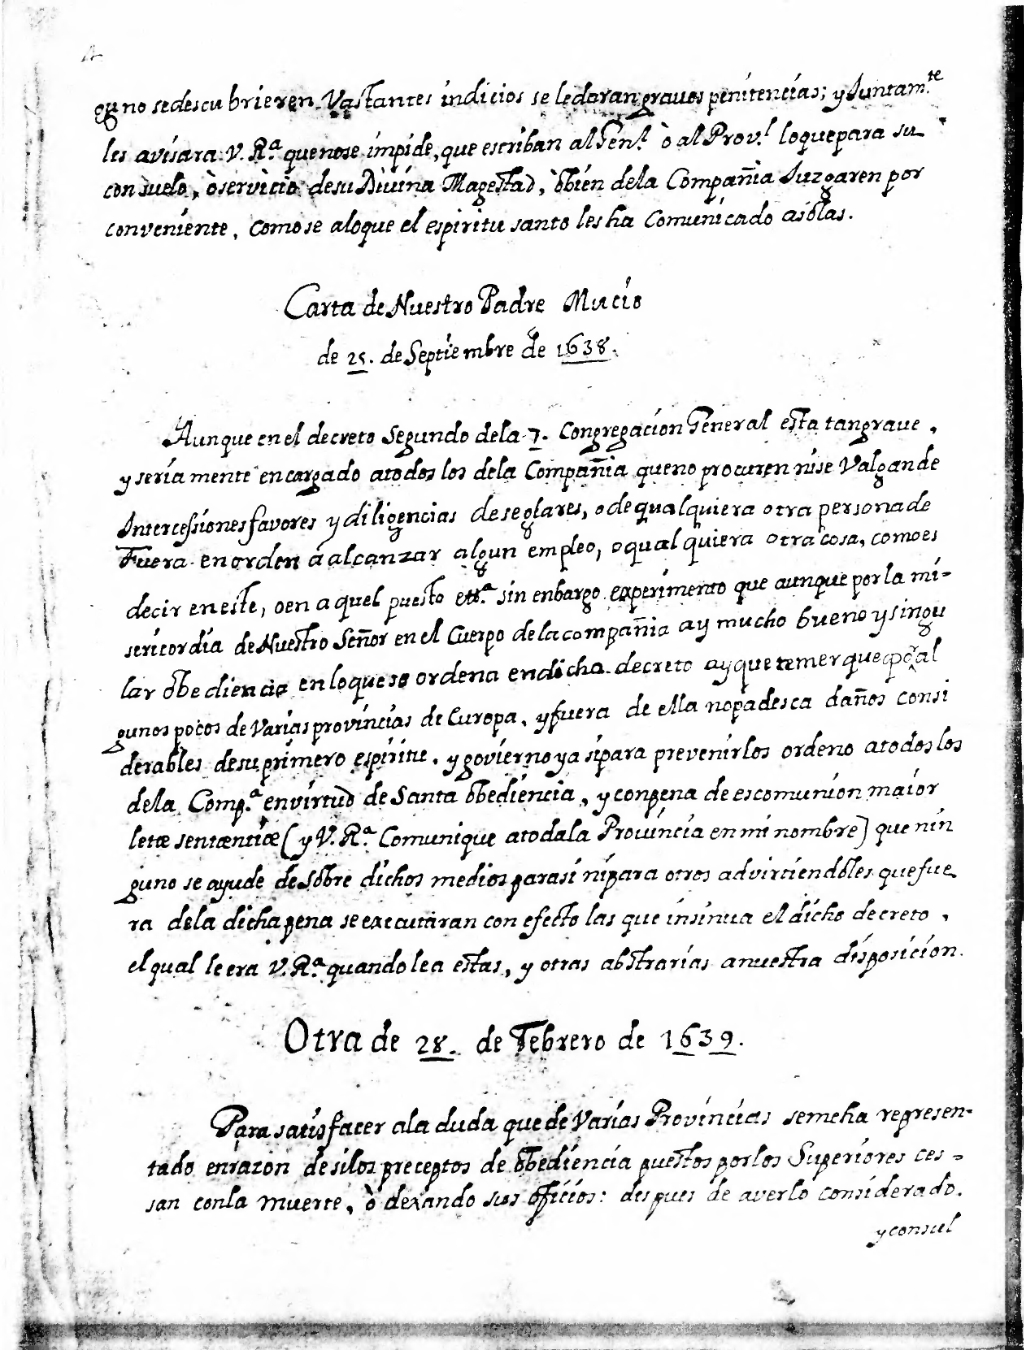 guno se descubrieren Vastantes indicios se le daran graves penitencias; y Juntam.te
les avisara V. R.ª que no se impide, que escriban al Gen.l ò al Prov.l lo que para su
consuelo, ò servicio de su Divina Magestad, ò bien de la Compañia Juzgaren por
conveniente, como se aloque el espiritu santo les ha Comunicado asolas.
Carta de Nuestro Padre Mucio
de 25. de Septiembre de 1638.
Aunque en el decreto Segundo de la 7. Congregacion General esta tan grave,
y seriamente encargado atodos los dela Compañia que no procuren ni se Valgan de
Intercessiones favores y diligencias de seglares, o de qualquiera otra persona de
Fuera en orden á alcanzar algun empleo, o qualquiera otra cosa, como es
decir en este, o en aquel puesto ett.ª sin enbargo experimento que aunque por la mi-
sericordia de Nuestro Señor en el Cuerpo de la compañia ay mucho bueno y singu
lar obediencia en loque se ordena en dicha decreto ay que temer que por al
gunos pocos de Varias provincias de Europa, y fuera de ella no padesca daños consi
derables de su primero espiritu. y govierno ya si para prevenirlos ordeno atodos los
dela Comp.ª en virtud de Santa obediencia, y con pena de escomunion maior
letæ sentæntiæ (y V. R.ª Comunique atoda la Provincia en mi nombre) que nin
guno se ayude de sobre dichos medios para si ni para otros advirtiendoles que fue
ra dela dicha pena se executaran con efecto las que insinua el dicho decreto,
el qual leera V. R.ª quando lea estas, y otras abstrarias anuestra disposicion.
Otra de 28. de Febrero de 1639.
Para satisfacer ala duda que de Varias Provincias se me ha represen-
tado en razon de si los preceptos de obediencia puestos por los Superiores ces-
san con la muerte, ò dexando sus oficios: despues de averlo considerado.
y consul